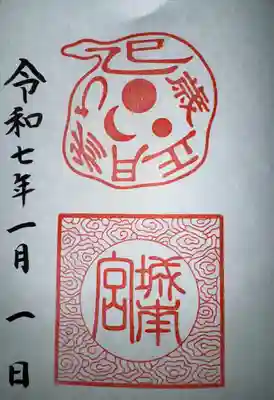 令和七年一月一日
巳歳正月
城南宮